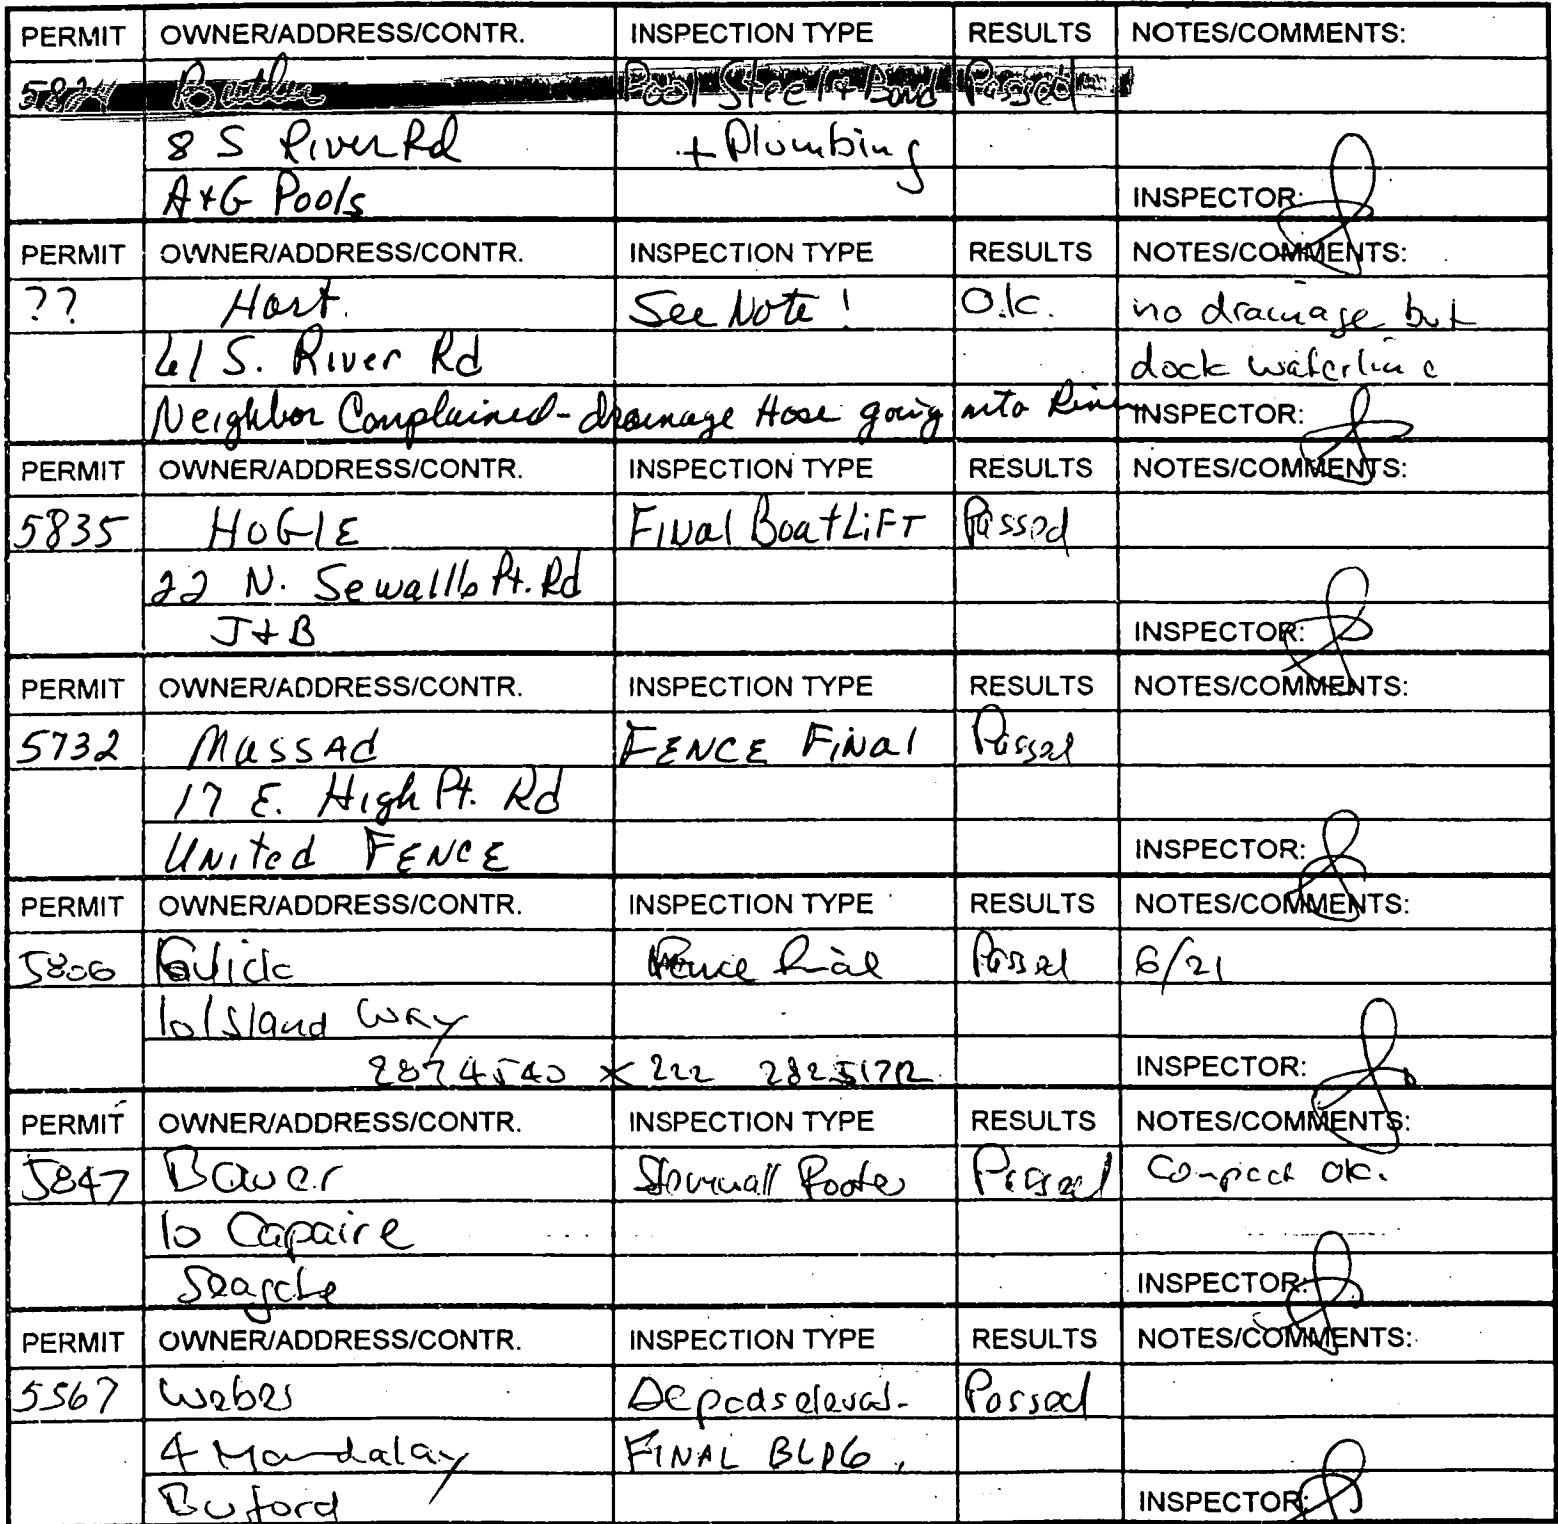 PERMIT OWNER/ADDRESS/CONTR. INSPECTION TYPE RESULTS NOTES/COMMENTS:
Butler Pool Steel + Bond Passed
8 S River Rd + Plumbing
A+G Pools INSPECTOR:
PERMIT OWNER/ADDRESS/CONTR. INSPECTION TYPE RESULTS NOTES/COMMENTS:
?? Hart. See Note! O.K. no drainage but
61 S. River Rd dock waterline
Neighbor Complained - drainage Hose going into River INSPECTOR:
PERMIT OWNER/ADDRESS/CONTR. INSPECTION TYPE RESULTS NOTES/COMMENTS:
5835 HOGLE FINAL Boat LIFT Passed
22 N. Sewalls Pt. Rd
J+B INSPECTOR:
PERMIT OWNER/ADDRESS/CONTR. INSPECTION TYPE RESULTS NOTES/COMMENTS:
5732 MASSAd FENCE FINAl Passed
17 E. High Pt. Rd
UNited FENCE INSPECTOR:
PERMIT OWNER/ADDRESS/CONTR. INSPECTION TYPE RESULTS NOTES/COMMENTS:
5806 Fence final Passed 6/21
10 Island Way
2874540 x 222 INSPECTOR:
PERMIT OWNER/ADDRESS/CONTR. INSPECTION TYPE RESULTS NOTES/COMMENTS:
5847 Bauer Stemwall Footer Passed Compact OK.
10 Capaire
INSPECTOR:
PERMIT OWNER/ADDRESS/CONTR. INSPECTION TYPE RESULTS NOTES/COMMENTS:
5567 Weber Passed
4 Mandalay FINAL BLDG.
Buford INSPECTOR: